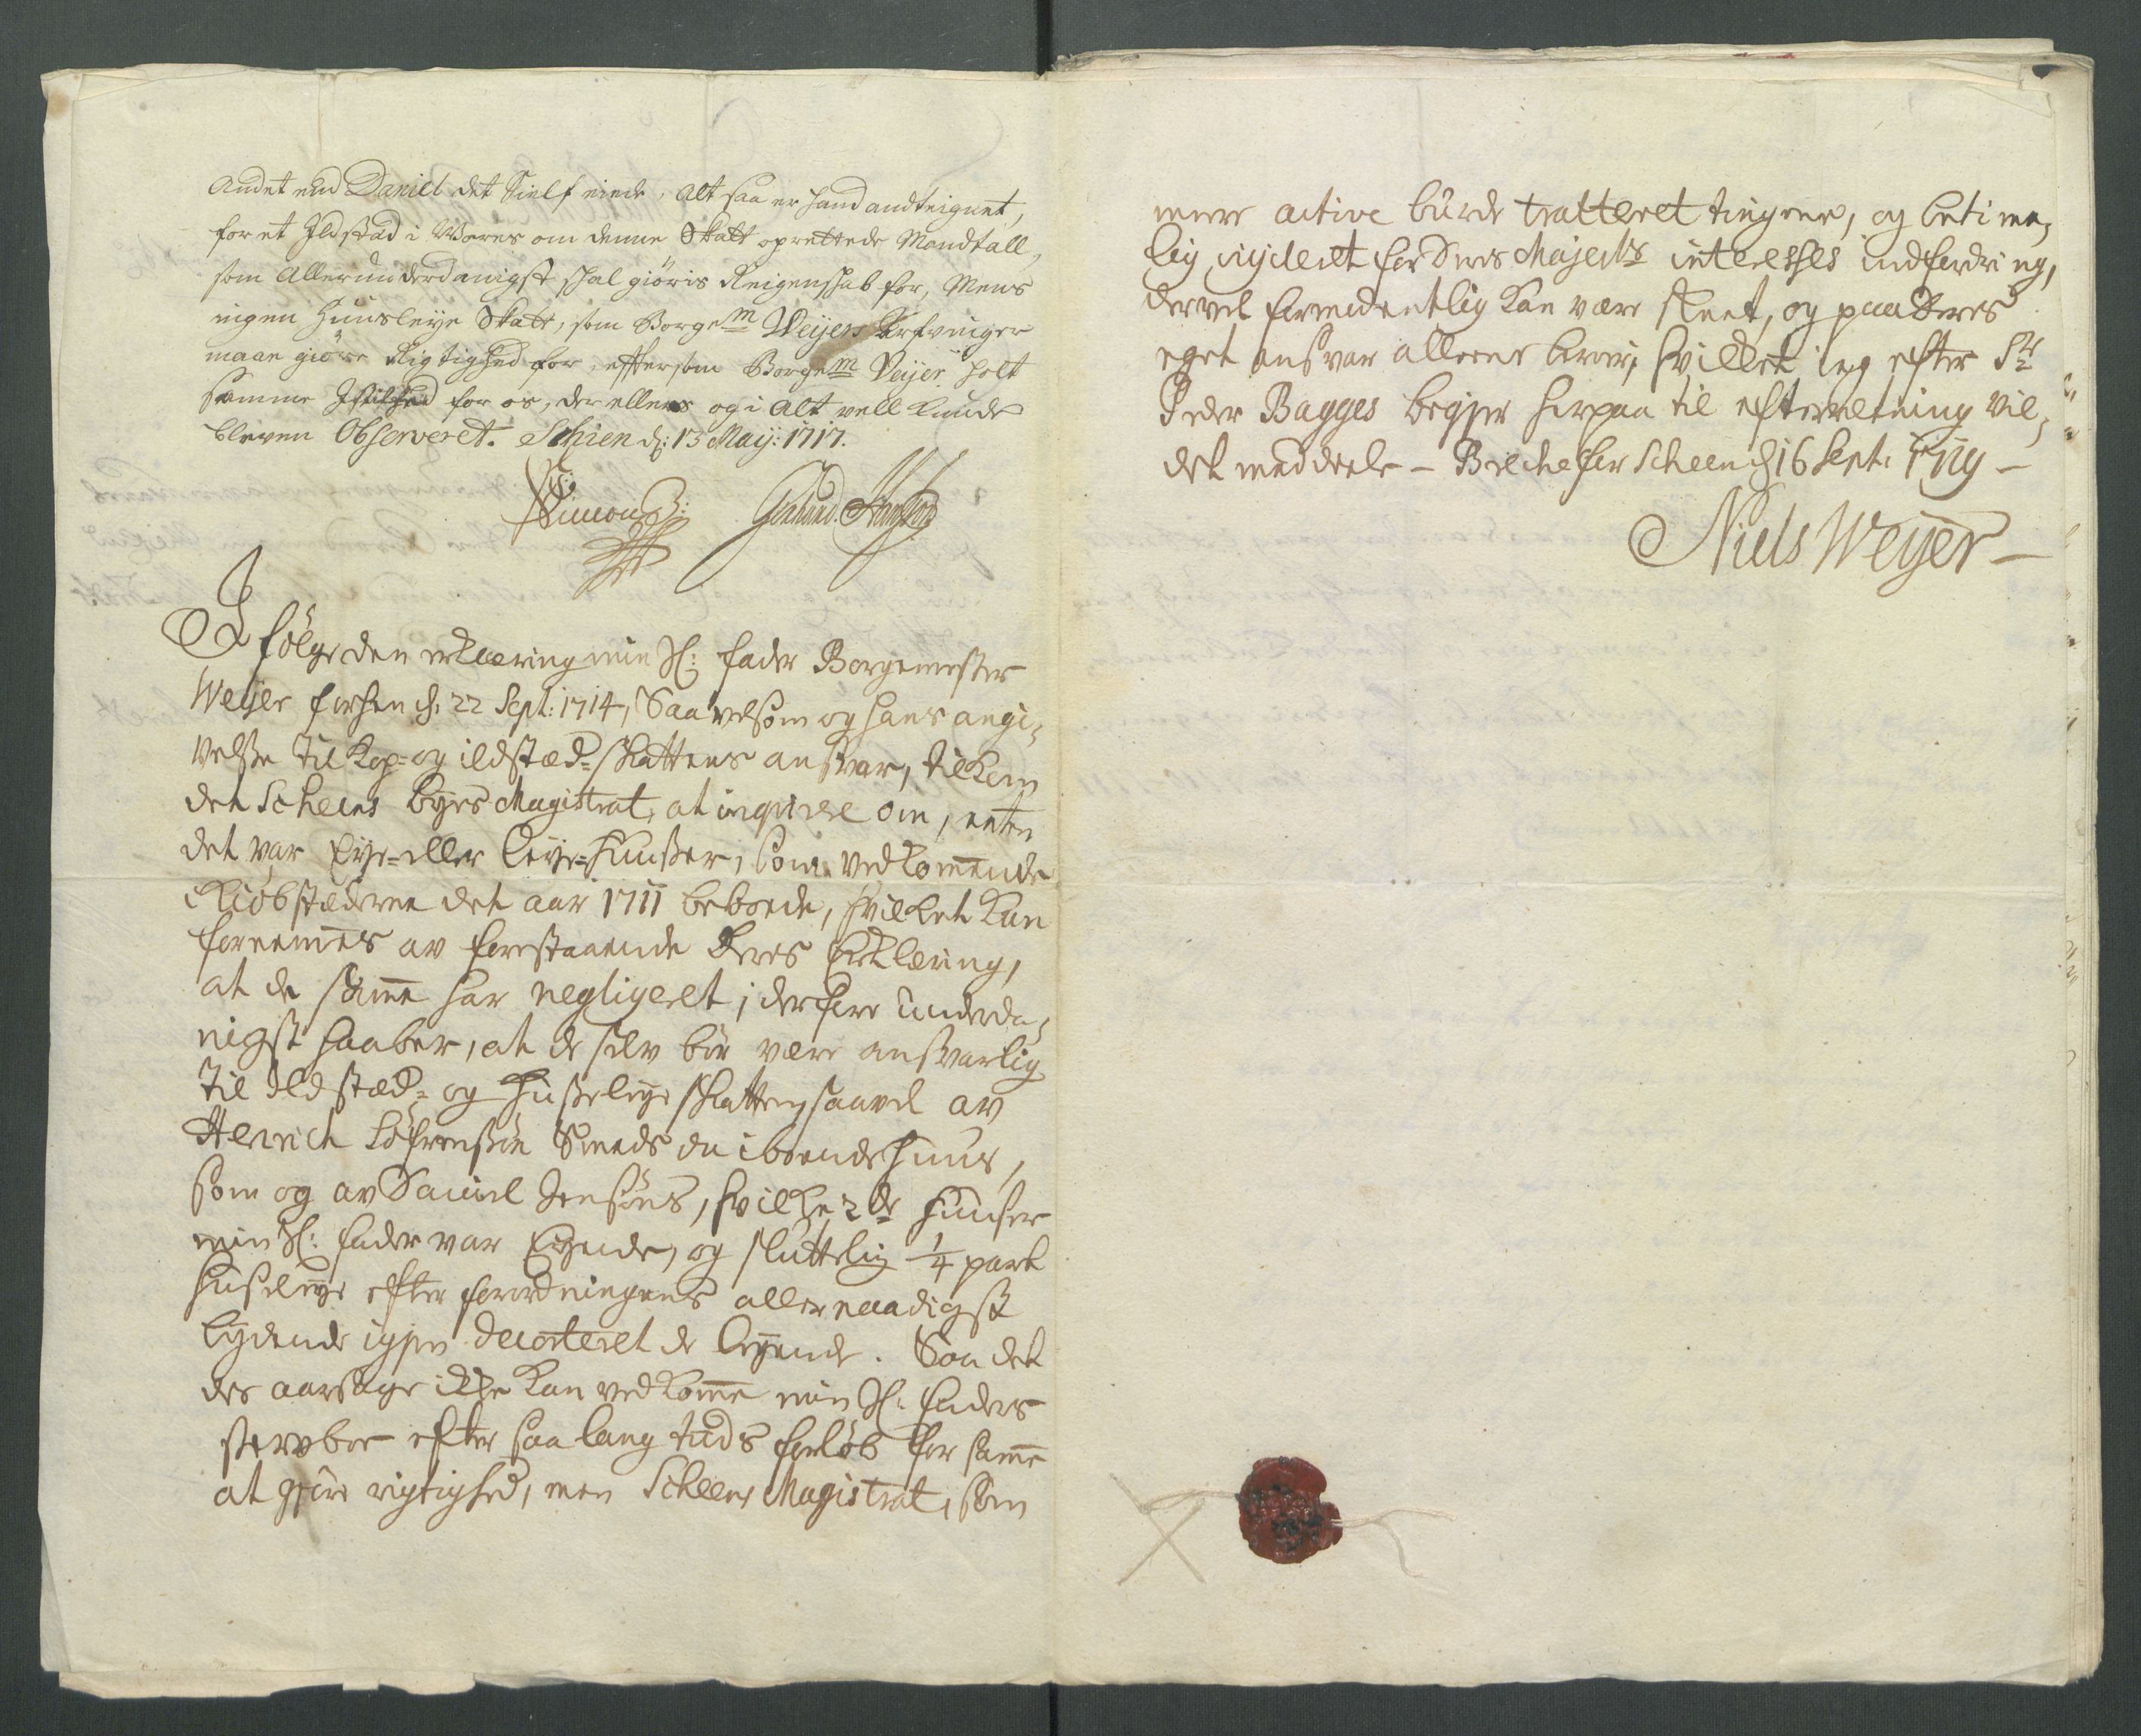 Andet end Daniel det Sielf eiede, Alt saa er hand andteignet,
for et Ildstæd i Vores om denne Skatt oprettede Mandtall,
som Allerunderdanigst schal giöris Reigenschab for, Mens
ingen Huusleye Skatt, som Borgem Weyers Arfvinger
maae giöre Rigtighed for, effter som Borgem Veijer holt
samme for os, der ellers og i Alt vell kunde
bleven Observeret. Schien d: 13 Maij: 1717.
Simon
I fölge den erklæring min Sl: fader Borgemester
Weyer forhen d. 22 Sept: 1714, Saavelsom og hans angi-
velse til Kop- og ildstæd-skattens ansvar, tilkom
det Scheens byes Magistrat, at inqvirere om, enten
det var Eye- eller leye-Huuser, som vedkommende
Kiöbstæderne det aar 1711 beboede, hvilket kan
fornemmes av forestaaende deres Erklæring,
at de samme har negligeret; derfore underda-
nigst haaber, at de selv bör være ansvarlig
til Ildstæd- og Husseleye skatten, saavel av
Henrich Söfrensön Smeds da iboende huus,
som og av Daniel Jensöns, hvilke 2de Huuser
min Sl: fader var Eyende, og sluttelig 1/4 part
Husseleye efter forordningens allernaadigst
lydende igjen decorteret de leyende. Saa det
des aarsage ikke kan vedkomme min Sl: faders
stervboe efter saa lang tids forlöb for samme
at gjöre rigtighed, men Scheens Magistrat, som
mere active burde tracteret tingene, og betime-
lig vigileret for Deres Majests interesses indfordring,
der vel formeentlig kan være skeet, og paa deres
eget ansvar alleene beroer; hvilket ieg efter Sr
Peder Bagges begjer herpaa til efterretning vil-
det meddeele – Bratsberg Scheen d 16 Sept: 1719 –
Niels Weyer –